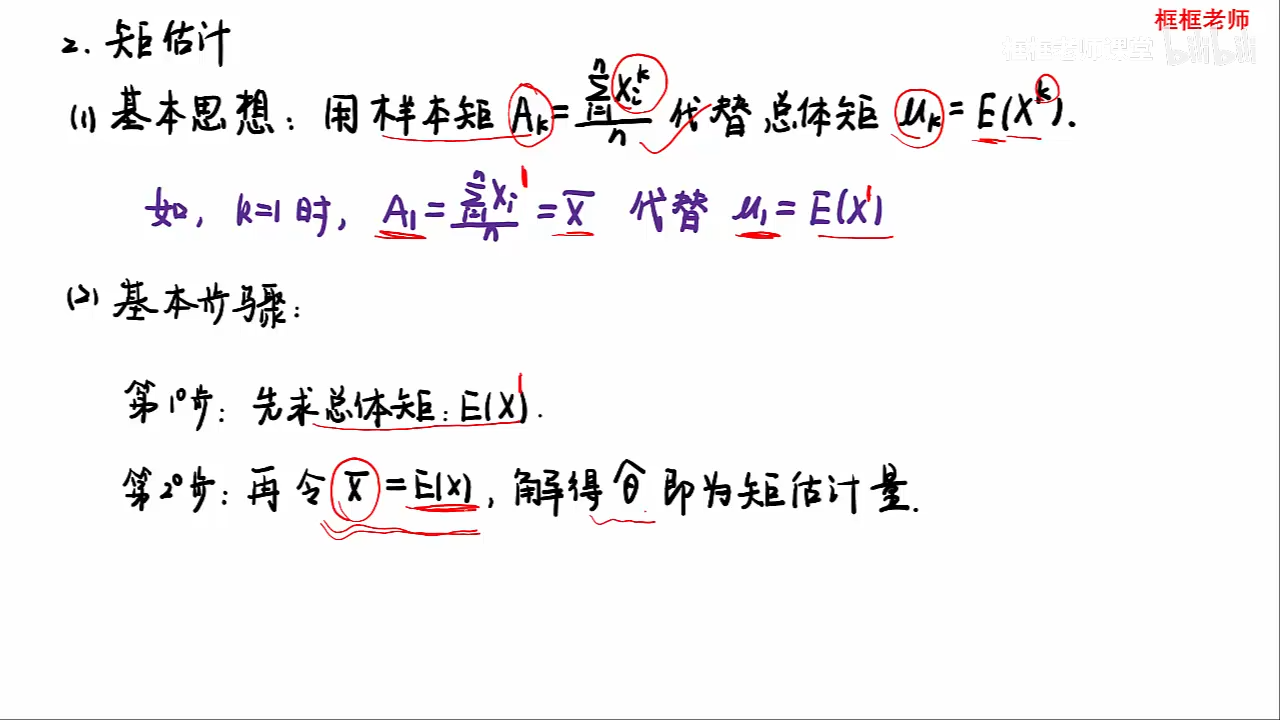 框框老师
框框老师课堂 bilibili
2. 矩估计
(1) 基本思想: 用样本矩 Aₖ = ∑ᵢ₌₁ⁿ Xᵢᵏ / n 代替总体矩 μₖ = E(Xᵏ).
如, k=1时, A₁ = ∑ᵢ₌₁ⁿ Xᵢ¹ / n = X̄ 代替 μ₁ = E(X¹)
(2) 基本步骤:
第1°步: 先求总体矩: E(X)¹.
第2°步: 再令 X̄ = E(X), 解得 θ̂ 即为矩估计量.